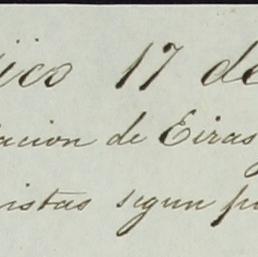 ico 17 de
iacion de Eiras
istas segun p